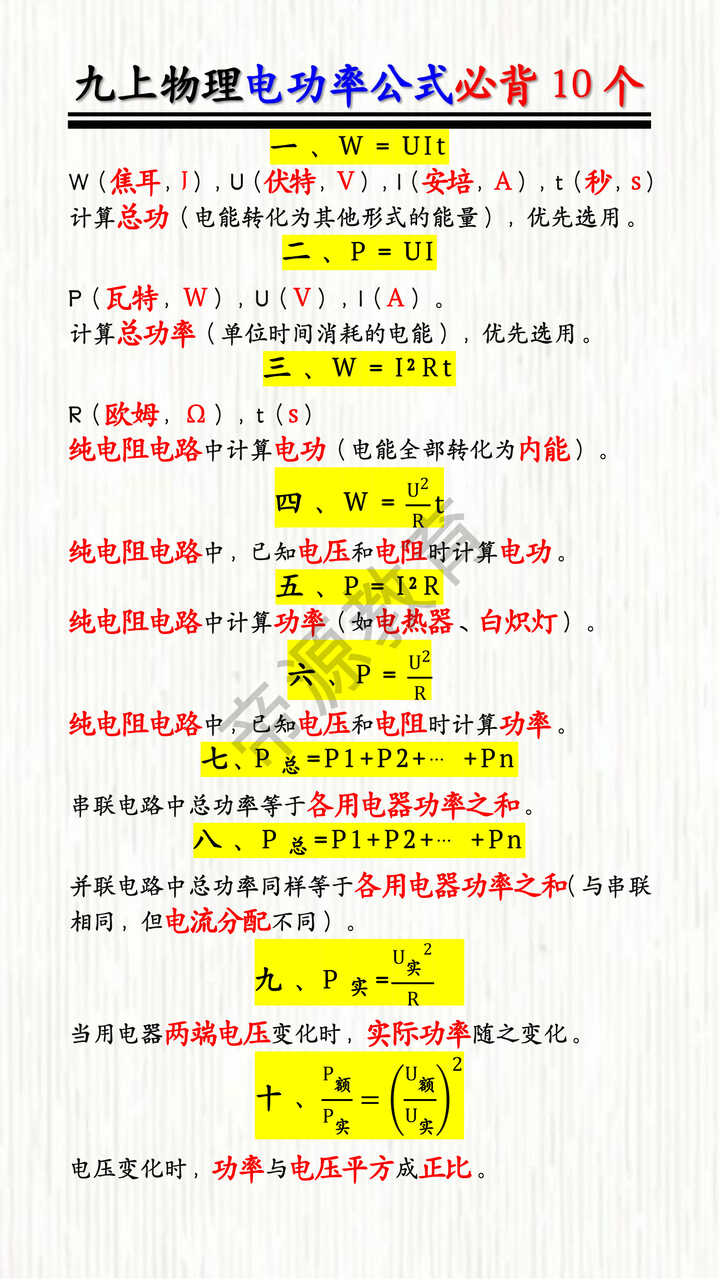 九上物理电功率公式必背10个
一、W = UIt
W（焦耳，J），U（伏特，V），I（安培，A），t（秒，s）
计算总功（电能转化为其他形式的能量），优先选用。
二、P = UI
P（瓦特，W），U（V），I（A）。
计算总功率（单位时间消耗的电能），优先选用。
三、W = I²Rt
R（欧姆，Ω），t（s）
纯电阻电路中计算电功（电能全部转化为内能）。
四、W = U²/R t
纯电阻电路中，已知电压和电阻时计算电功。
五、P = I²R
纯电阻电路中计算功率（如电热器、白炽灯）。
六、P = U²/R
纯电阻电路中，已知电压和电阻时计算功率。
七、P总=P1+P2+… +Pn
串联电路中总功率等于各用电器功率之和。
八、P总=P1+P2+… +Pn
并联电路中总功率同样等于各用电器功率之和（与串联
相同，但电流分配不同）。
九、P实=U实²/R
当用电器两端电压变化时，实际功率随之变化。
十、P额/P实=(U额/U实)²
电压变化时，功率与电压平方成正比。
帝源教育